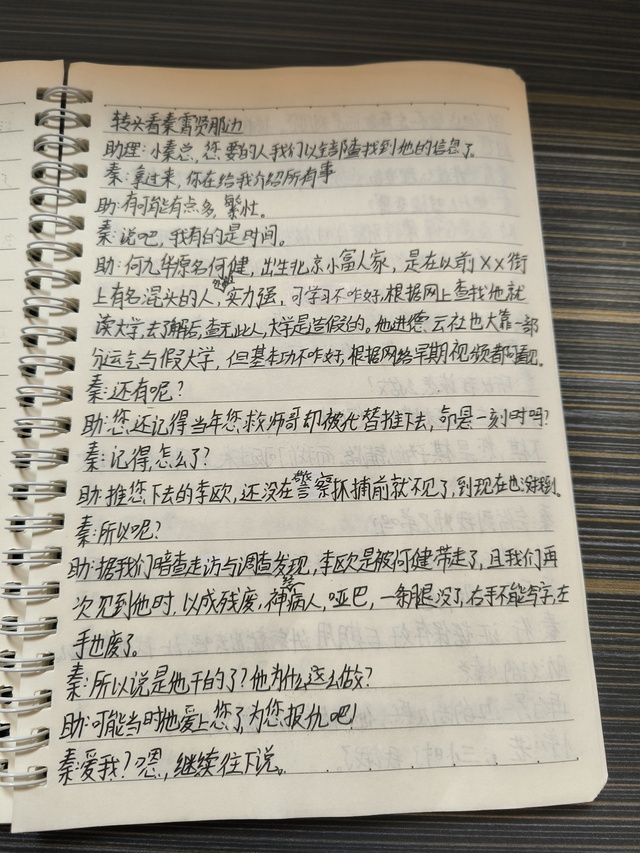 转头看秦霄贤那边
助理:小秦总,您要的人我们以全部查找到他的信息了。
秦:拿过来,你在给我介绍所有事
助:有可能有点多,繁忙。
秦:说吧,我有的是时间。
助:何九华原名何健,出生北京小富人家,是在以前XX街
上有名混头的人,实力强,可学习不咋好,根据网上查找他就
读大学,去了解后,查无此人,大学是造假的。他进德云社也大靠一部
分运气与假大学,但基本功不咋好,根据网络早期视频都可看见。
秦:还有呢?
助:您还记得当年您救师哥却被代替推下去,命悬一刻时吗?
秦:记得,怎么了?
助:推您下去的李欧,还没在警察抓捕前就不见了,到现在也没找到。
秦:所以呢?
助:据我们暗查走访与调查发现,李欧是被何健带走了,且我们再
次见到他时,以成残废,神经病人,哑巴,一条腿没了,右手不能写字,左
手也废了。
秦:所以说是他干的了?他为什么这么做?
助:可能当时他爱上您了,为您报仇吧!
秦:爱我?嗯,继续往下说。